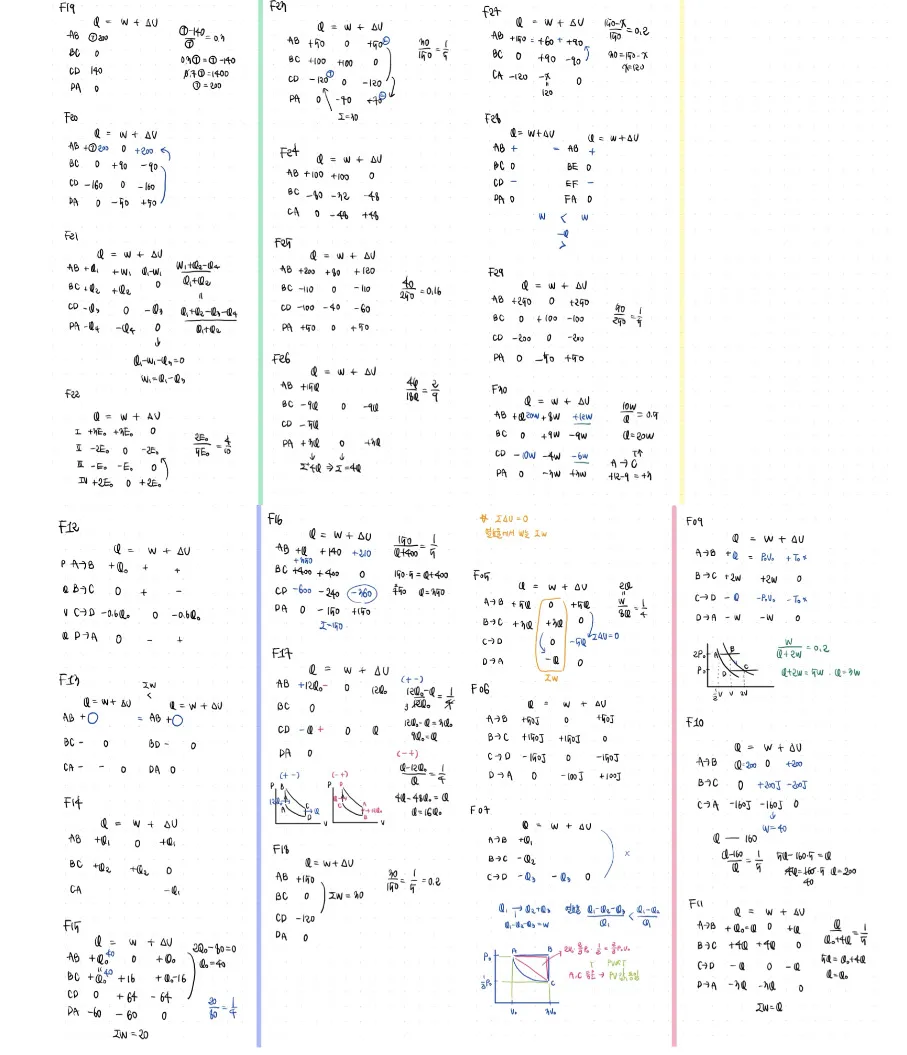 F19
Q = W + ΔU
AB ①200
BC 0
CD 140
DA 0
①-140/① = 0.3
0.3① = ①-140
0.7① = 1400
① = 200
F20
Q = W + ΔU
AB +①200 0 +200
BC 0 +90 -90
CD -160 0 -160
DA 0 -50 +50
F21
Q = W + ΔU
AB +Q₁ +W₁ Q₁-W₁
BC +Q₂ +Q₂ 0
CD -Q₃ 0 -Q₃
DA -Q₄ -Q₄ 0
W₁+Q₂-Q₄/Q₁+Q₂
=
Q₁+Q₂-Q₃-Q₄/Q₁+Q₂
Q₁-W₁-Q₃=0
W₁=Q₁-Q₃
F22
Q = W + ΔU
I +3E₀ +3E₀ 0
II -2E₀ 0 -2E₀
III -E₀ -E₀ 0
IV +2E₀ 0 +2E₀
2E₀/5E₀ = 4/10
F23
Q = W + ΔU
AB +150 0 +150
BC +100 +100 0
CD -120 0 -120
DA 0 -70 +70
Σ=30
30/150 = 1/5
F24
Q = W + ΔU
AB +100 +100 0
BC -80 -32 -48
CA 0 -48 +48
F25
Q = W + ΔU
AB +200 +80 +120
BC -110 0 -110
CD -100 -40 -60
DA +50 0 +50
40/250 = 0.16
F26
Q = W + ΔU
AB +15Q
BC -9Q 0 -9Q
CD -5Q
DA +3Q 0 +3Q
Σ=4Q ⇒ Σ=4Q
4Q/18Q = 2/9
F27
Q = W + ΔU
AB +150 = +60 + +90
BC 0 +90 -90
CA -120 -x 0
120
150-x/150 = 0.2
30=150-x
x=120
F28
Q = W + ΔU Q = W + ΔU
AB + = AB +
BC 0 BE 0
CD - EF -
DA 0 FA 0
W < W
-Q
>
F29
Q = W + ΔU
AB +250 0 +250
BC 0 +100 -100
CD -200 0 -200
DA 0 -50 +50
50/250 = 1/5
F30
Q = W + ΔU
AB +Q 20W +8W +12W
BC 0 +9W -9W
CD -10W -4W -6W
DA 0 -3W +3W
10W/Q = 0.5
Q=20W
T↑
A → C
+12-9 = +3
F12
Q = W + ΔU
P A→B +Q₀ + +
Q B→C 0 + -
V C→D -0.6Q₀ 0 -0.6Q₀
Q D→A 0 - +
F13
ΣW
<
Q = W + ΔU Q = W + ΔU
AB +○ = AB +○
BC - 0 BD - 0
CA - - 0 DA 0
F14
Q = W + ΔU
AB +Q₁ 0 +Q₁
BC +Q₂ +Q₂ 0
CA -Q₁
F15
Q = W + ΔU
AB +Q₀ 40 0 +Q₀
BC +Q₀ 40 +16 +Q₀-16
CD 0 +64 -64
DA -60 -60 0
ΣW = 20
2Q₀-80=0
Q₀=40
20/80 = 1/4
F16
Q = W + ΔU
AB +Q +140 +210
+350
BC +400 +400 0
CD -600 -240 -360
DA 0 -150 +150
Σ=150
150/Q+400 = 1/5
150·5 = Q+400
750 Q=350
F17
Q = W + ΔU
AB +12Q₀- 0 12Q₀
BC 0
CD -Q + 0 Q
DA 0
(+-)
12Q₀-Q/12Q₀ = 1/4
12Q₀-Q = 3Q₀
9Q₀=Q
(-+)
Q-12Q₀/Q = 1/4
4Q-48Q₀ = Q
Q=16Q₀
(+-) (-+)
P B P
12Q₀→ C +Q
A D
V V
F18
Q = W + ΔU
AB +150
BC 0
CD -120
DA 0
ΣW = 30
30/150 = 1/5 = 0.2
* ΣΔU = 0
F05
Q = W + ΔU
A→B +5Q 0 +5Q
B→C +3Q +3Q 0
C→D 0 -5Q ΣΔU=0
D→A -Q 0
ΣW
2Q
W/8Q = 1/4
F06
Q = W + ΔU
A→B +50J 0 +50J
B→C +150J +150J 0
C→D -150J 0 -150J
D→A 0 -100J +100J
F07
Q = W + ΔU
A→B +Q₁
B→C -Q₂
C→D -Q₃ -Q₃ 0
x
Q₁ → Q₂+Q₃
Q₁-Q₂-Q₃ = W
Q₁-Q₂-Q₃/Q₁ < Q₁-Q₂/Q₁
P₀ A B
C
V₀ 3V₀
F09
Q = W + ΔU
A→B +Q = P₀V₀ +T₀x
B→C +2W +2W 0
C→D -Q -P₀V₀ -T₀x
D→A -W -W 0
2P₀ A B
P₀ D C
½V V 2V
W/Q+2W = 0.2
Q+2W = 5W · Q=3W
F10
Q = W + ΔU
A→B Q=200 0 +200
B→C 0 +200J -200J
C→A -160J -160J 0
W=40
Q — 160
Q-160/Q = 1/5
5Q-160·5 = Q
4Q=160·5 Q=200
40
F11
Q = W + ΔU
A→B +Q₀=Q 0 +Q
B→C +4Q +4Q 0
C→D -Q 0 -Q
D→A -3Q -3Q 0
ΣW=Q
Q/Q₀+4Q = 1/5
5Q = Q₀+4Q
Q=Q₀